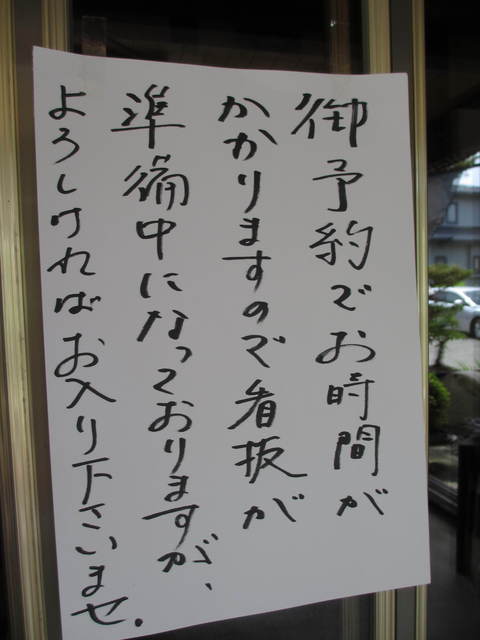 御予約でお時間が
かかりますので看抜が
準備中になっておりますが、
よろしければお入り下さいませ.